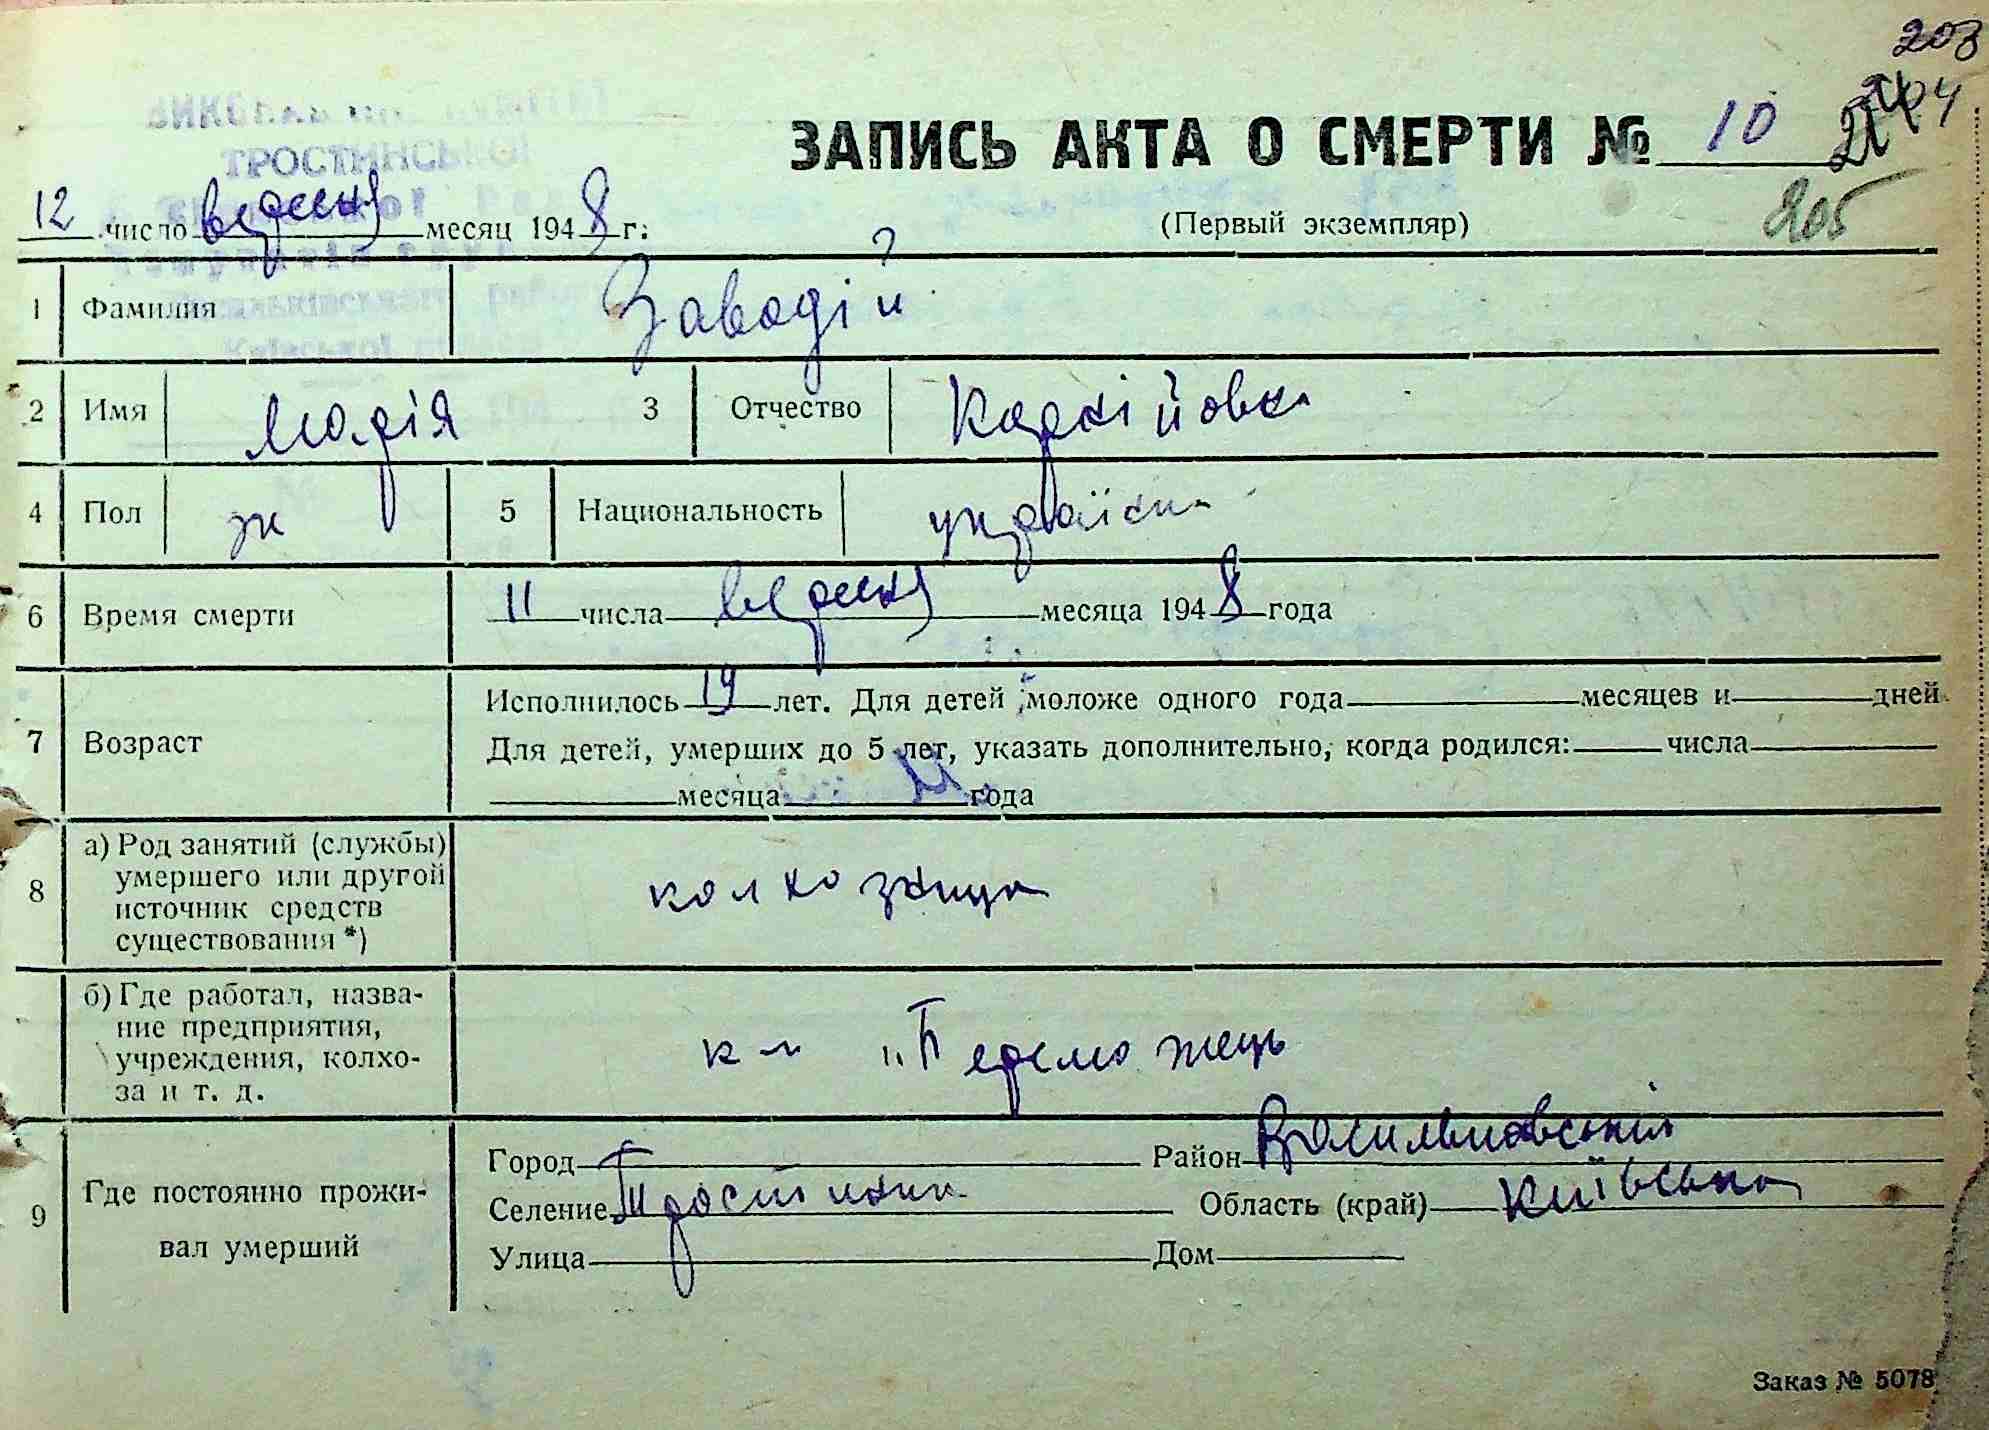 203
204
ЗАПИСЬ АКТА О СМЕРТИ № 10
205
ТРОСТИНСЬКОЇ
12 число вересня месяц 1948 г.
(Первый экземпляр)
1 Фамилия Заводій
2 Имя Марія 3 Отчество Каркійовна
4 Пол ж 5 Национальность українка
6 Время смерти 11 числа вересня месяца 1948 года
7 Возраст
Исполнилось 19 лет. Для детей моложе одного года месяцев и дней
Для детей, умерших до 5 лет, указать дополнительно, когда родился: числа
месяца года
8 а) Род занятий (службы)
умершего или другой
источник средств
существования *)
колхозниця
б) Где работал, назва-
ние предприятия,
учреждения, колхо-
за и т. д.
к-п „Переможець
9 Где постоянно прожи-
вал умерший
Город Район Васильківський
Селение Тростинка Область (край) Київська
Улица Дом
Заказ № 5078